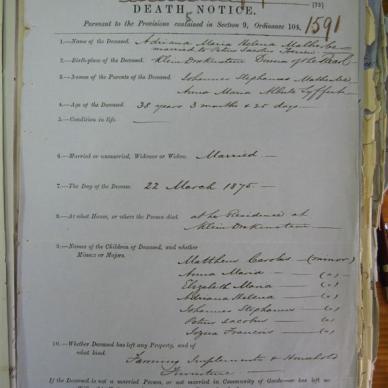 DEATH NOTICE.
Pursuant to the Provisions contained in Section 9, Ordinance 104, 1591
1.—Name of the Deceased, Adriana Maria Helena Malherbe
married to Pieter Jacobus
2.—Birth-place of the Deceased, Klein Drakenstein Division of the Paarl
3.—Names of the Parents of the Deceased, Johannes Stephanus Malherbe
Anna Maria
4.—Age of the Deceased, 38 years 3 months & 25 days —
5.—Condition in life,
6.—Married or unmarried, Widower or Widow, Married —
7.—The Day of the Decease, 22 March 1875 —
8.—At what House, or where the Person died, at the Residence at
Klein Drakenstein —
9.—Names of the Children of Deceased, and whether
Minors or Majors,
Mattheus Carolus — (minor)
Anna Maria —
Elizabeth Maria —
Adriana Helena —
Johannes Stephanus —
Pieter Jacobus —
Francois —
10.—Whether Deceased has left any Property, and of
what kind,
Farming Implements & Household
Furniture —
If the Deceased is not a married Person, or not married in Community of Goods—has left no